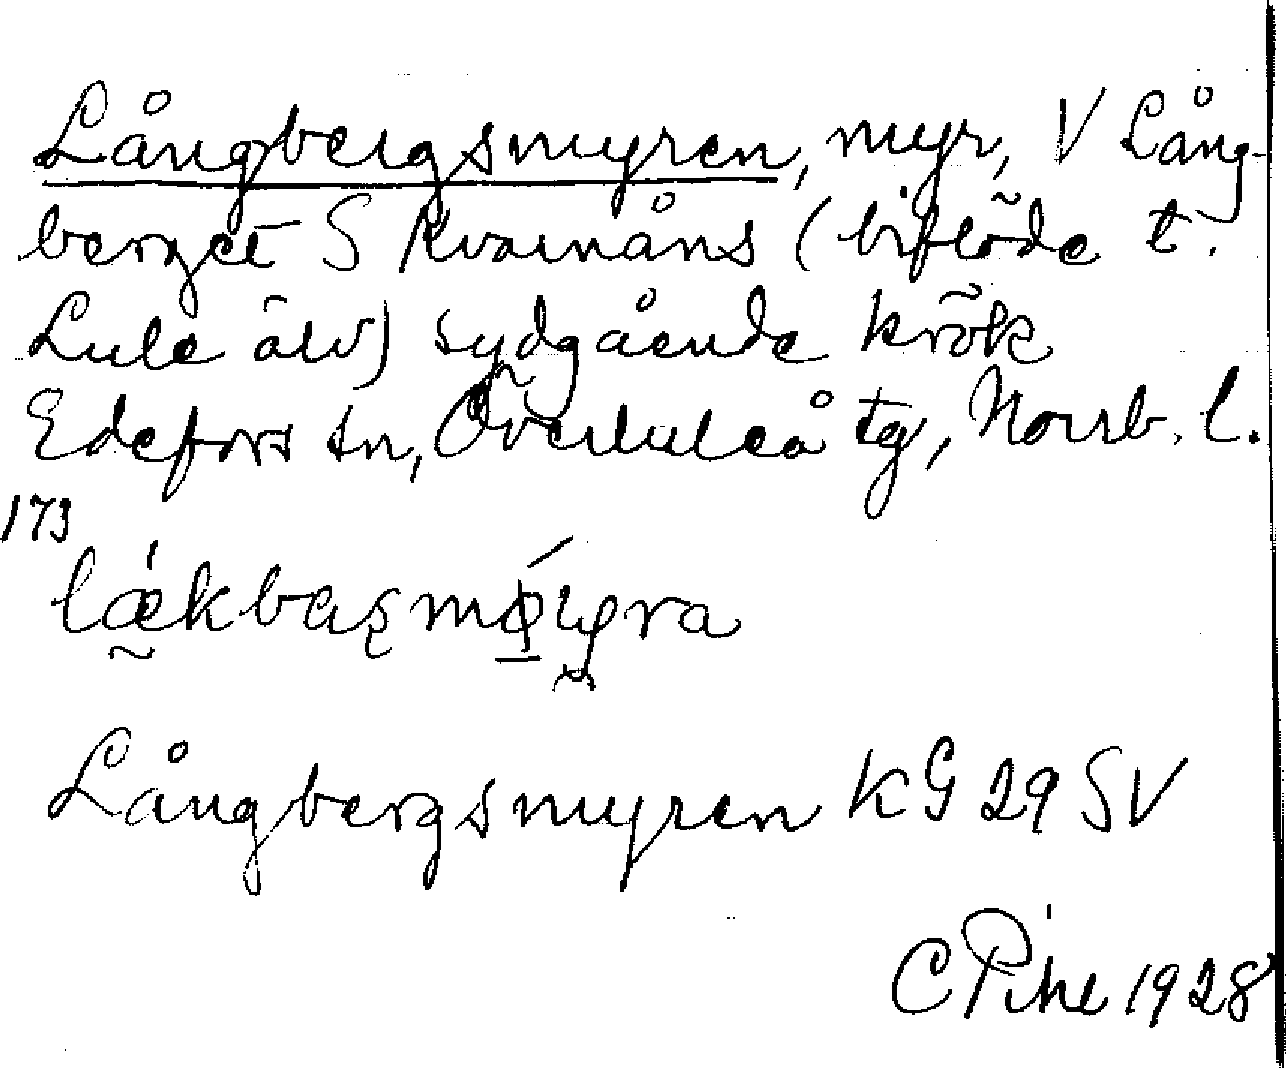 Långbergsmyren, myr, V Lång-
berget S Kvarnåns (biflöde t.
Lule älv) sydgående krök
Edefors sn, Överluleå tg, Norrb. l.
173
Långbergsmyren KG 29 SV
C Pihl 1928